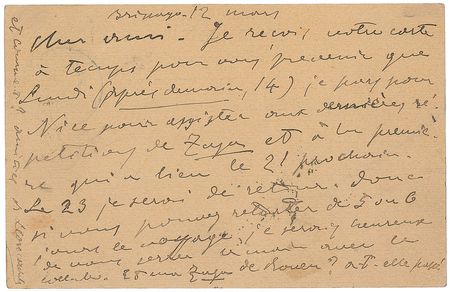 Brissago. 12 mars
Cher ami - Je reçois votre carte
à temps pour vous prévenir que
Lundi (après demain, 14) je pars pour
Nice pour assister aux dernières ré-
petitions de Zaza et à la premiè-
re qui a lieu le 21 prochain.
Le 23 je serai de retour. donc
si vous pouvez retarder de 5 ou 6
jours le voyage, je serai heureux
de vous serrer la main avec le
collabo. Et ma Zaza de Rouen? a-t-elle passé
et comment?